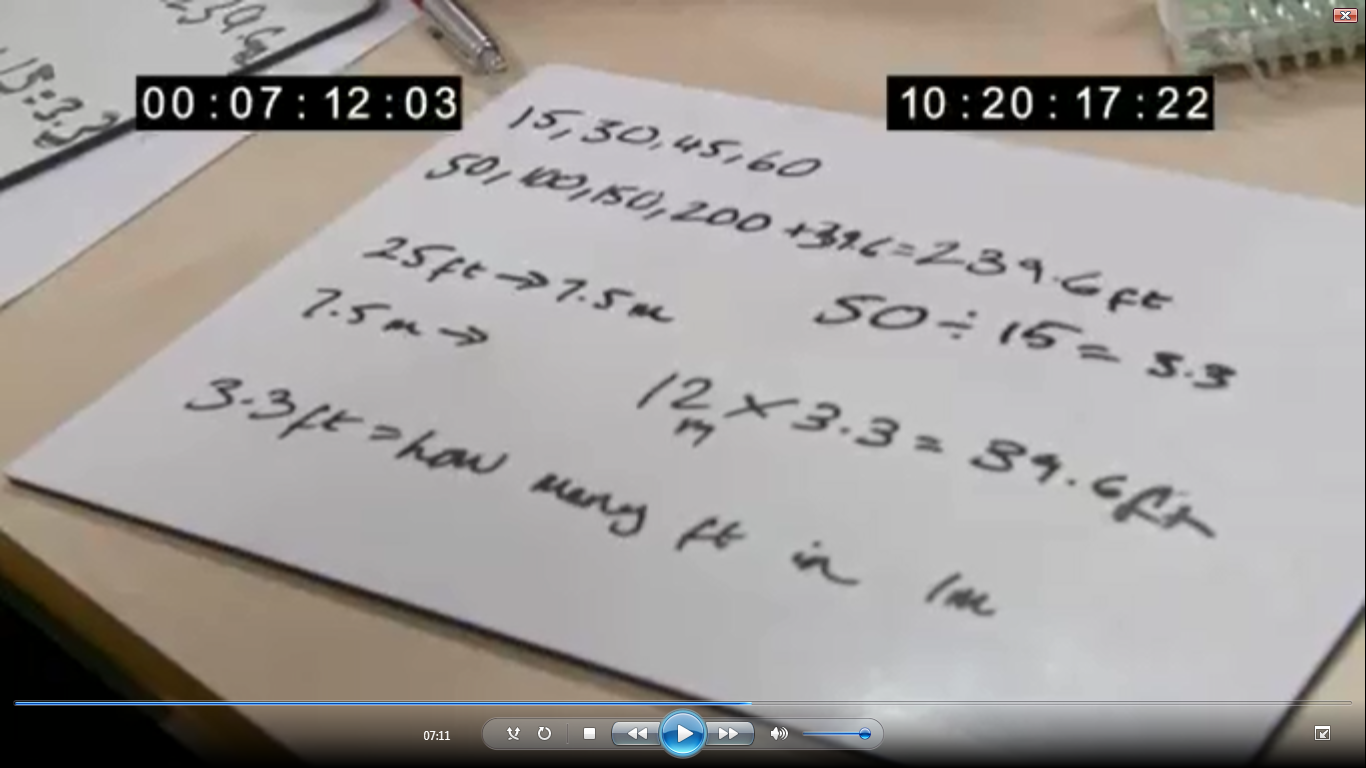 239.6
15=3.3
00:07:12:03
10:20:17:22
15, 30, 45, 60
50, 100, 150, 200 +39.6=239.6ft
25ft → 7.5m
50 ÷ 15 = 3.3
7.5m →
12 x 3.3 = 39.6ft
m
3.3ft = how many ft in 1m
07:11